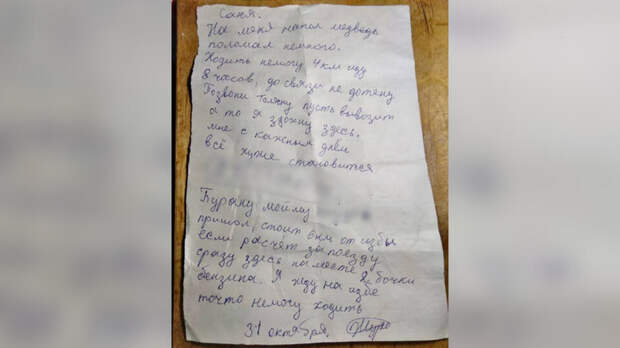 Саня.
На меня напал медведь
поломал немного.
Ходить немогу 4 км иду
8 часов, до связи не дотяну
Позвони Толяну пусть вывозит
а то я здохну здесь.
мне с каждым днем
всё хуже становится.
Бурану моему
пришол, стоит 6 км от избы
если расчёт за поездку
сразу здесь на месте 2 бочки
бензина. Я жду на избе
точто немогу ходить
31 октября.